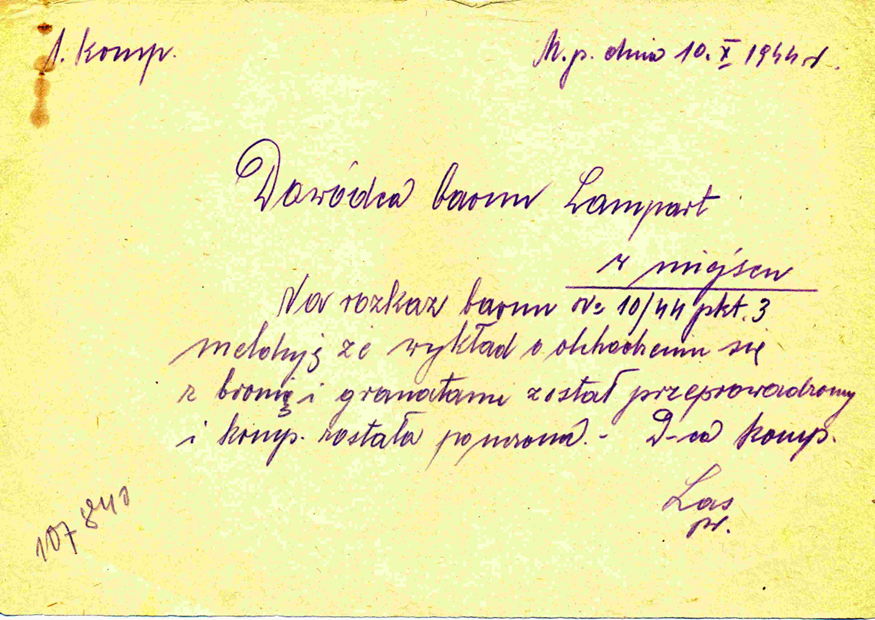 1. komp.
M.p. dnia 10.X 1944 r.
Dowódca baonu Lampart
w miejscu
Na rozkaz baonu Nr 10/44 pkt. 3
melduję że wykład o obchodzeniu się
z bronią i granatami został przeprowadzony
i komp. została pouczona. - D-ca komp.
Las
107840